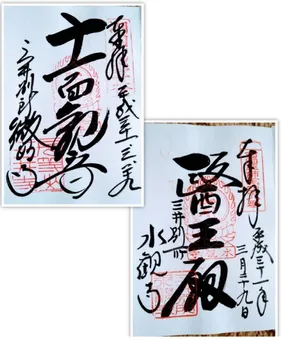 奉拝
平成三十一 三・二九
十一面観音
三井別所
微妙寺
奉拝
平成三十一年
三月二十九日
醫王殿
三井別所
水観寺